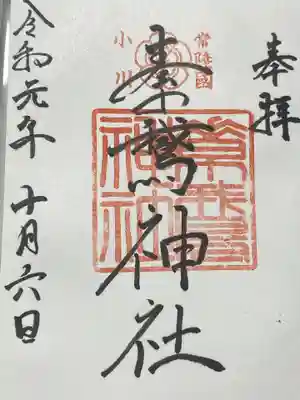 奉拝
常陸國
小川
素鵞神社
令和元年 十月六日